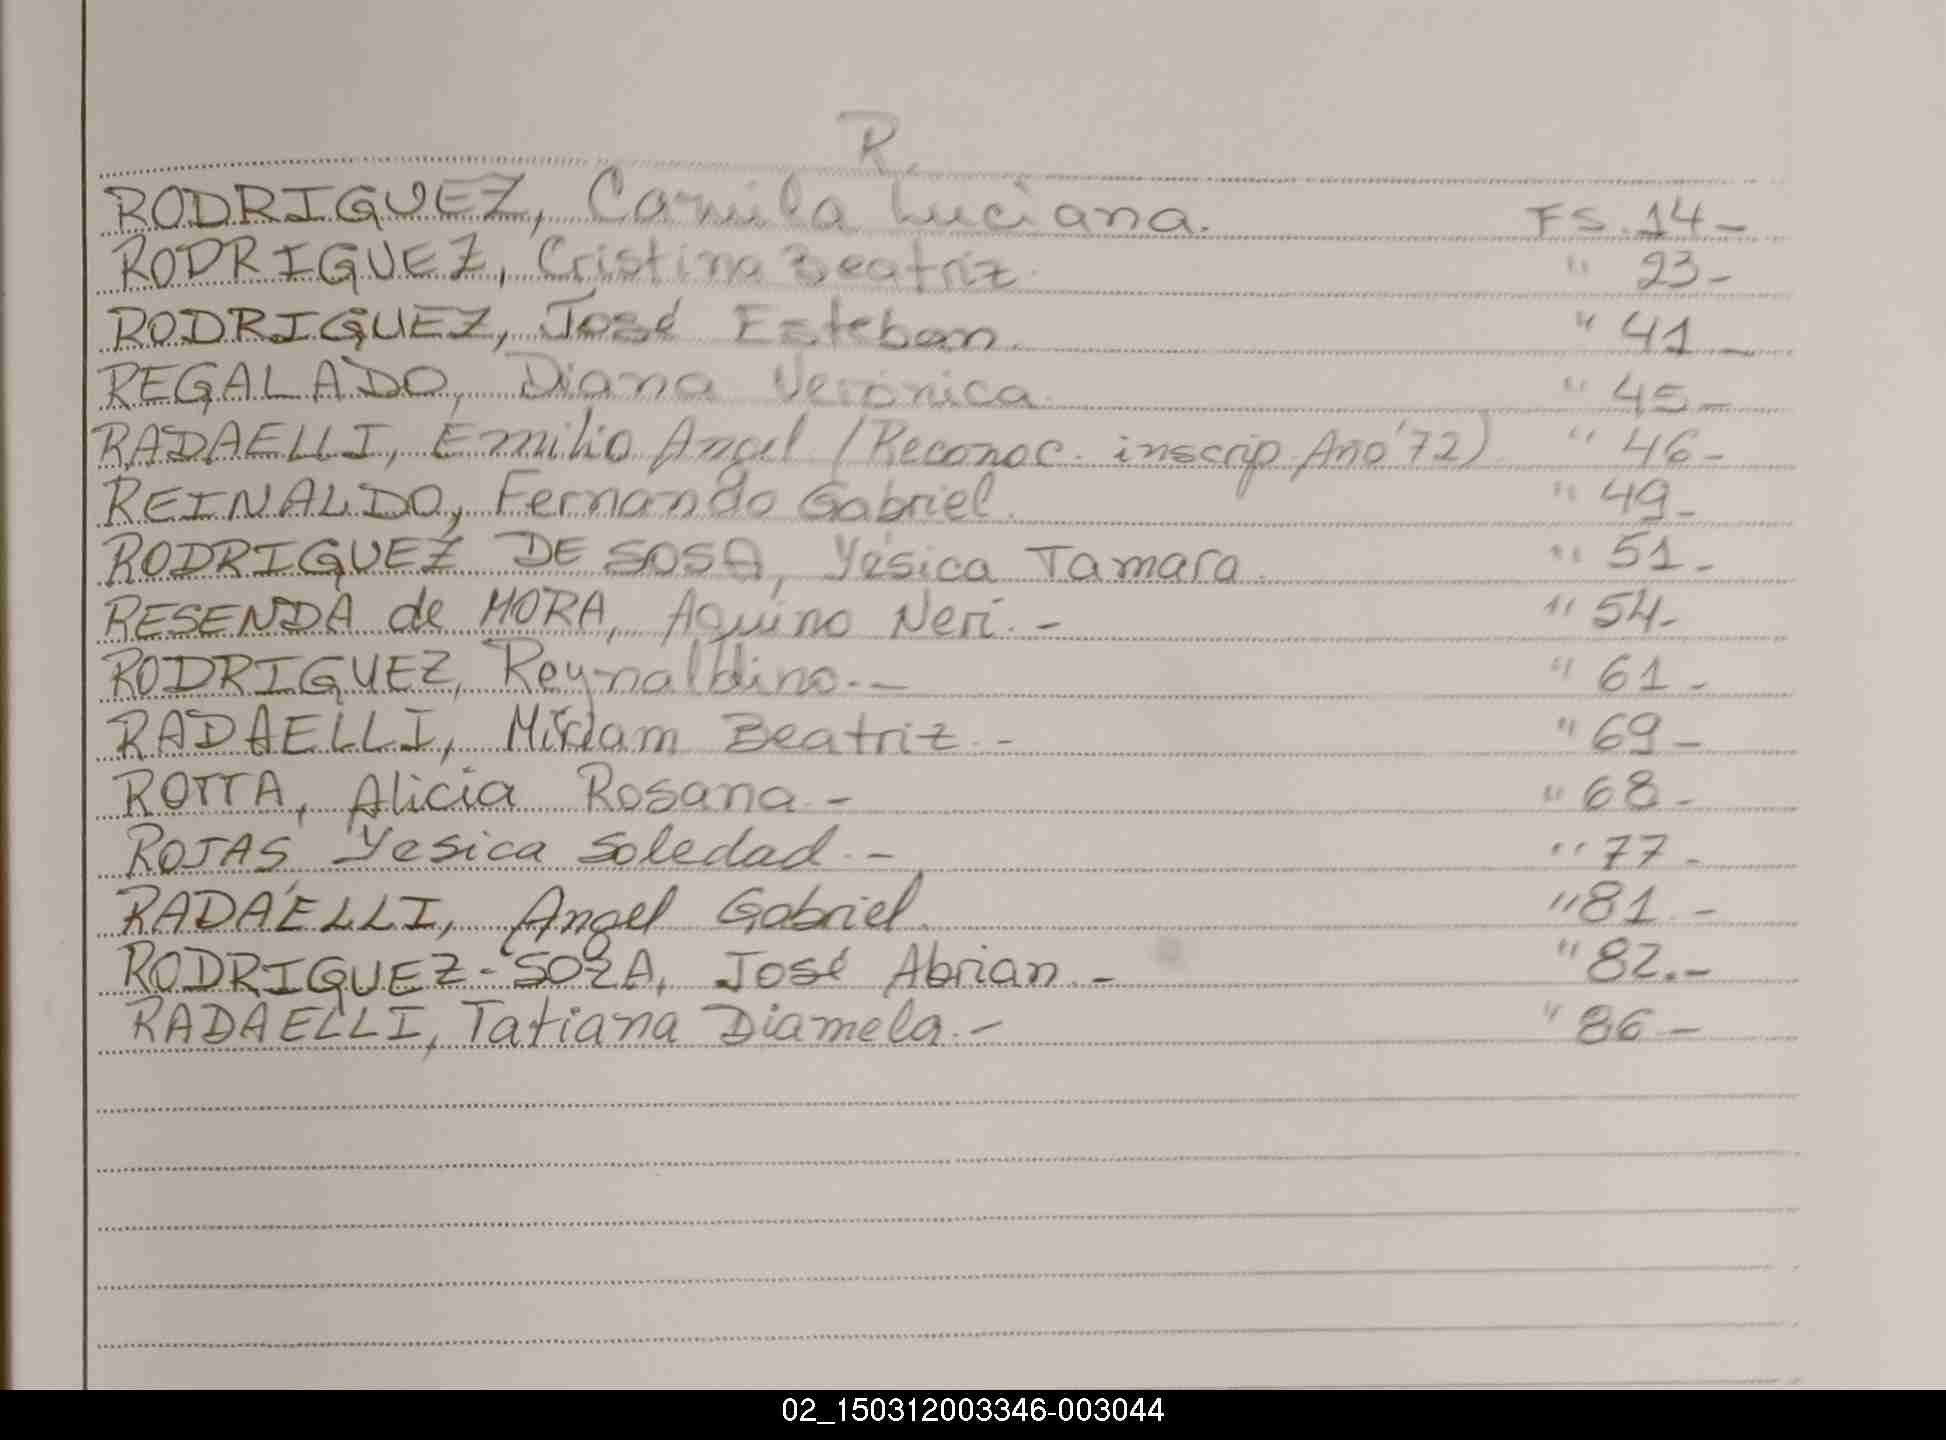 R.
RODRIGUEZ, Camila Luciana. FS. 14-
RODRIGUEZ, Cristina Beatriz. " 23-
RODRIGUEZ, José Esteban. " 41-
REGALADO, Diana Verónica. " 45-
RADAELLI, Emilio Angel (Reconoc. inscrip. Año '72) " 46-
REINALDO, Fernando Gabriel. " 49-
RODRIGUEZ DE SOSA, Yésica Tamara. " 51-
RESENDA de MORA, Aquino Neri.- " 54-
RODRIGUEZ, Reynaldino.- " 61-
RADAELLI, Miriam Beatriz.- " 69-
ROTTA, Alicia Rosana.- " 68-
ROJAS Yesica Soledad.- " 77-
RADAELLI, Angel Gabriel. " 81.-
RODRIGUEZ-SOZA, José Abrian.- " 82.-
RADAELLI, Tatiana Diamela.- " 86-
02_150312003346-003044